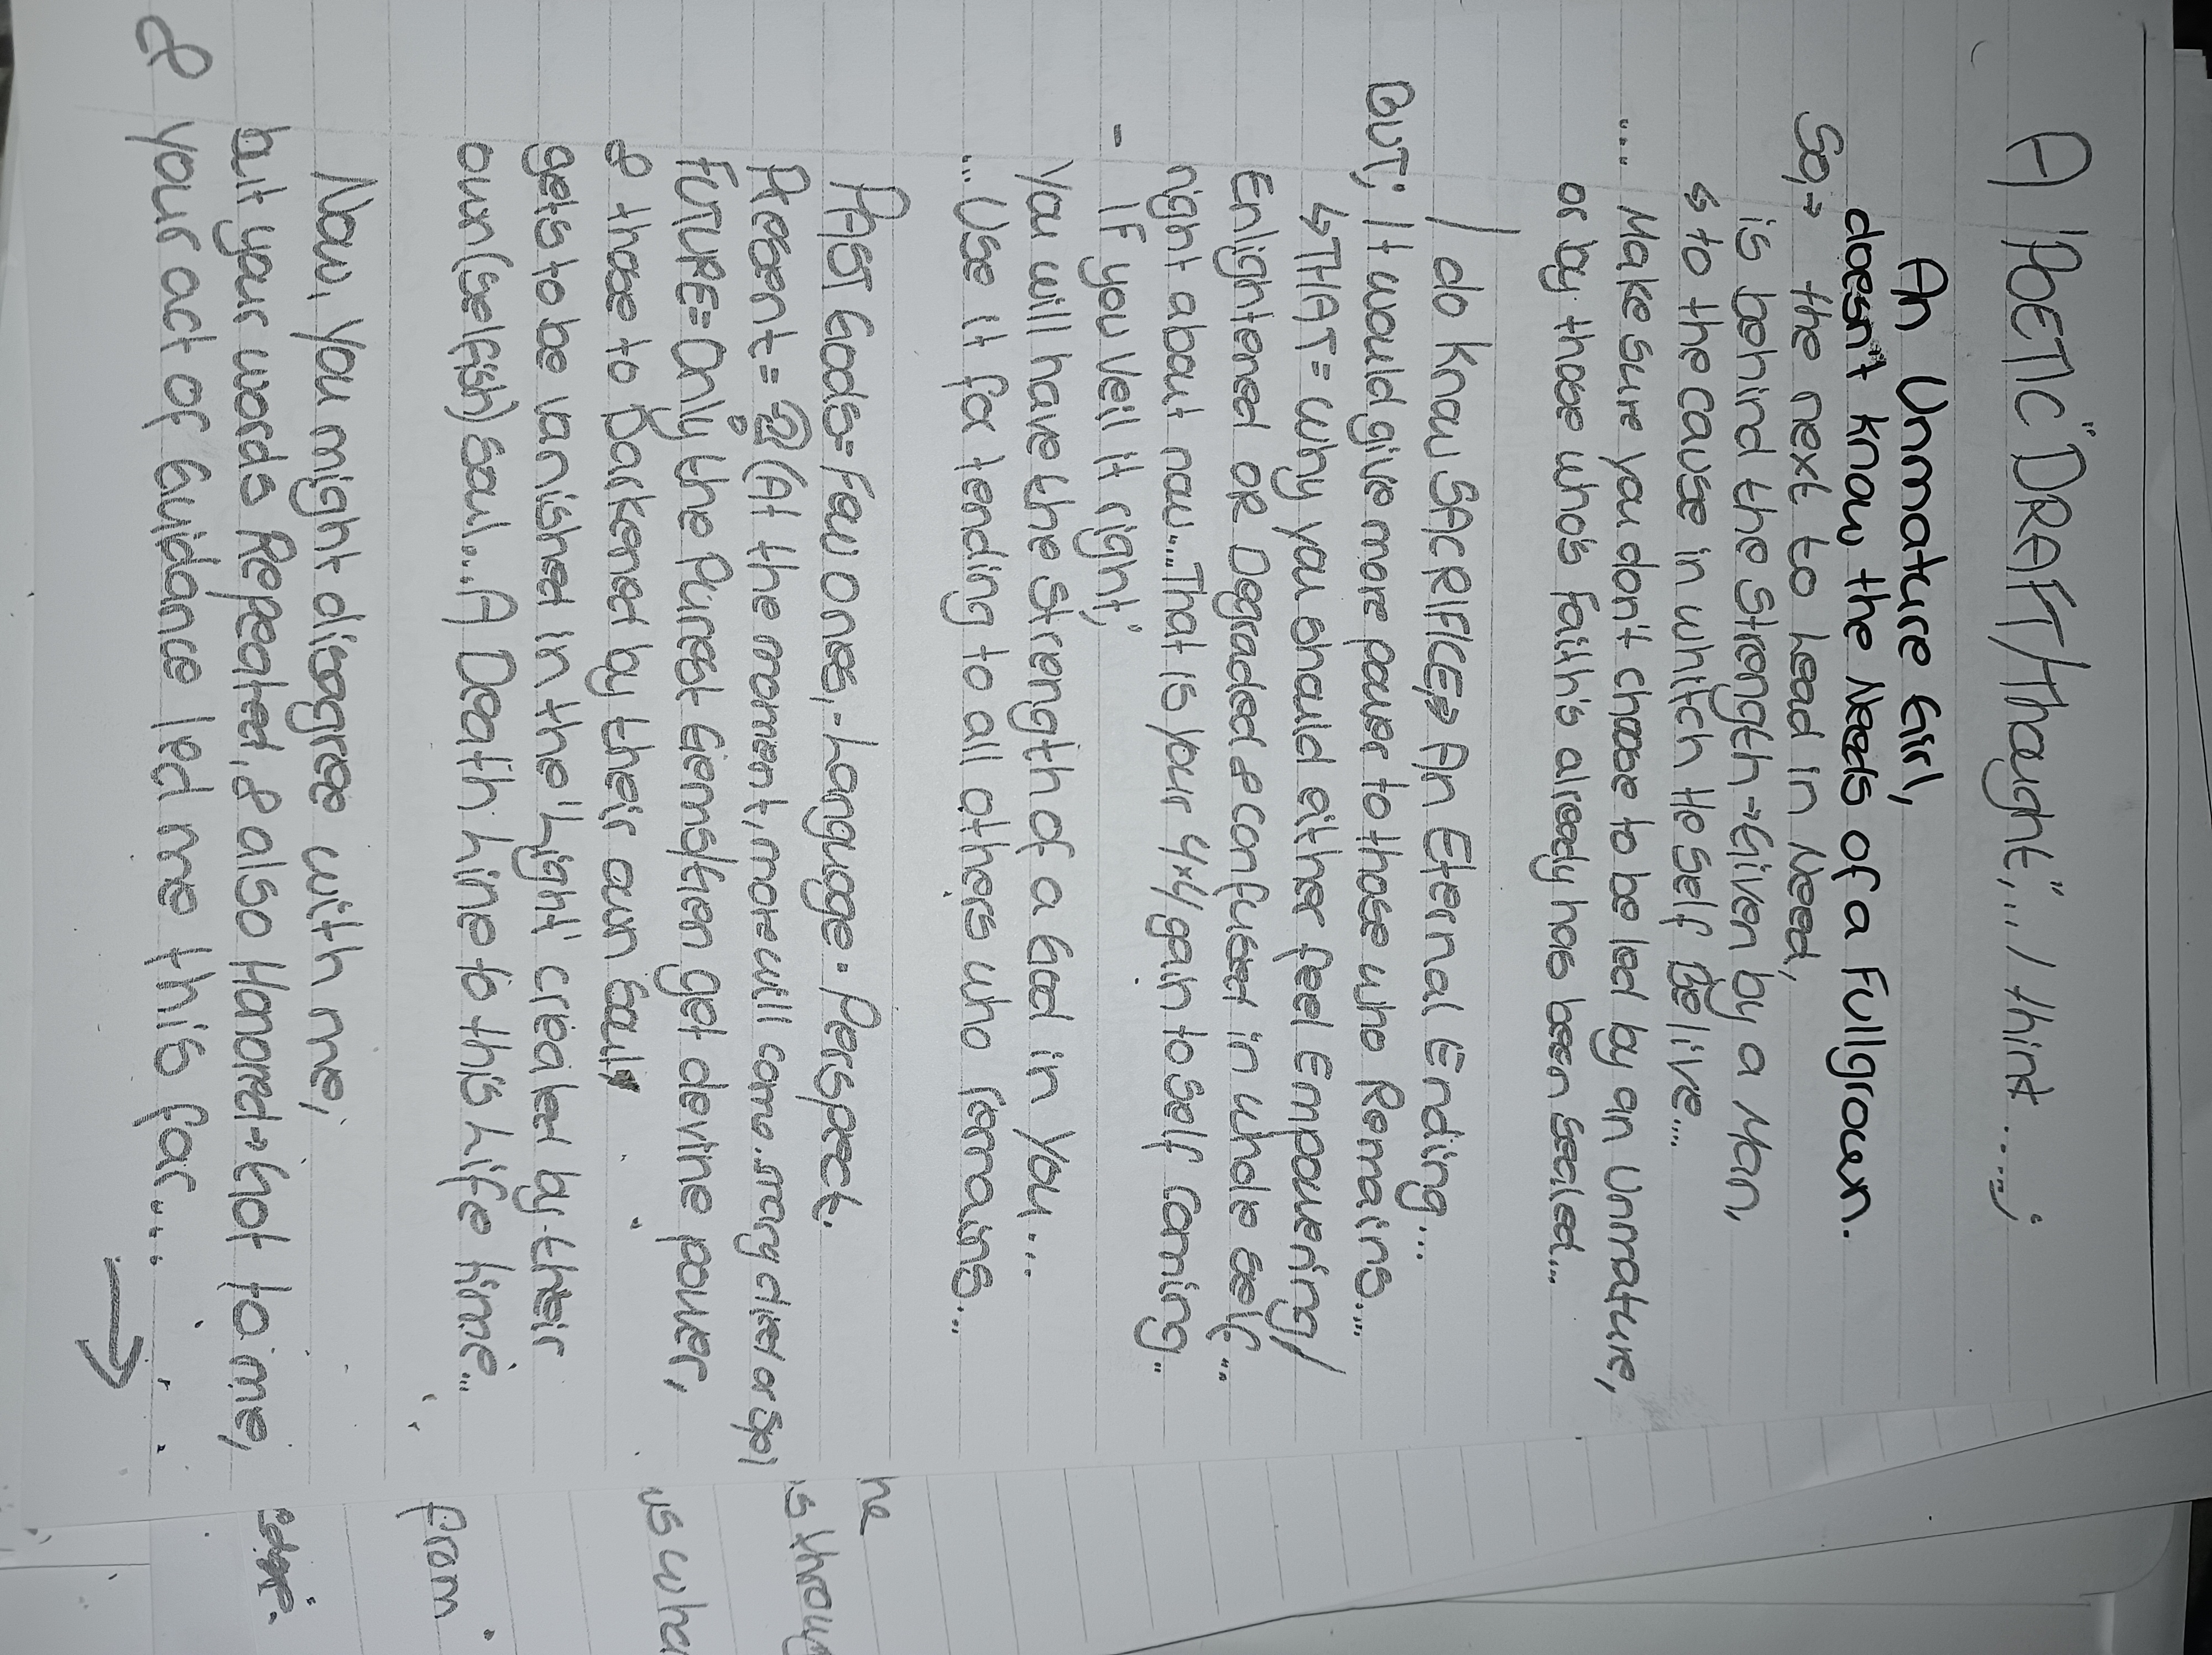 A "POETIC" DRAFT/Thought;.. I think.....;
An Unmature Girl,
doesn't know the Needs of a Fullgrown.
So,⇒ the next to head in Need,
is behind the Strength ⇒ Given by a Man,
↳ to the cause in whitch He self Belive....
.... Make sure you don't choose to be led by an Unmature,
or by those who's faith's already has been sealed...
I do know SACRIFICE⇒ An Eternal Ending....
BUT; It would give more power to those who Remains....
↳THAT= why you should either feel Empowering/
Enlightened OR Degraded & Confused in whole self...
right about now"...That is your 4x4 gain to self Coming"
- IF you Veil it right;
You will have the strength of a God in You...
... Use it for tending to all others who Remains...
PAST Gods= Few Ones, - Language. Perspect.
Present = (At the moment, more will come...
FUTURE= Only the Purest Gemsten get devine power,
& those to Darkened by their own Gall,
gets to be vanished in the Light created by their
own(selfish)soul... A Death wine to this Life know...
Now, You might disagree with me,
but your words Repeated, & also Honord⇒Got to me,
& your act of Guidance led me this far.....
ne
is
throug
in what
from